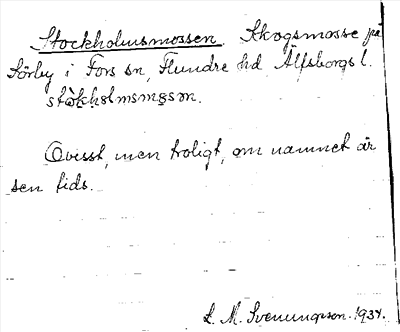 Stockholmsmossen. Skogsmosse på
Körby i Fors sn, Flundre hd Älfsborgs l.
stòkhɷlmsmɷsɷn.
Ovisst, men troligt, om namnet är
sen tids.
L. M. Svenungsson. 1934.